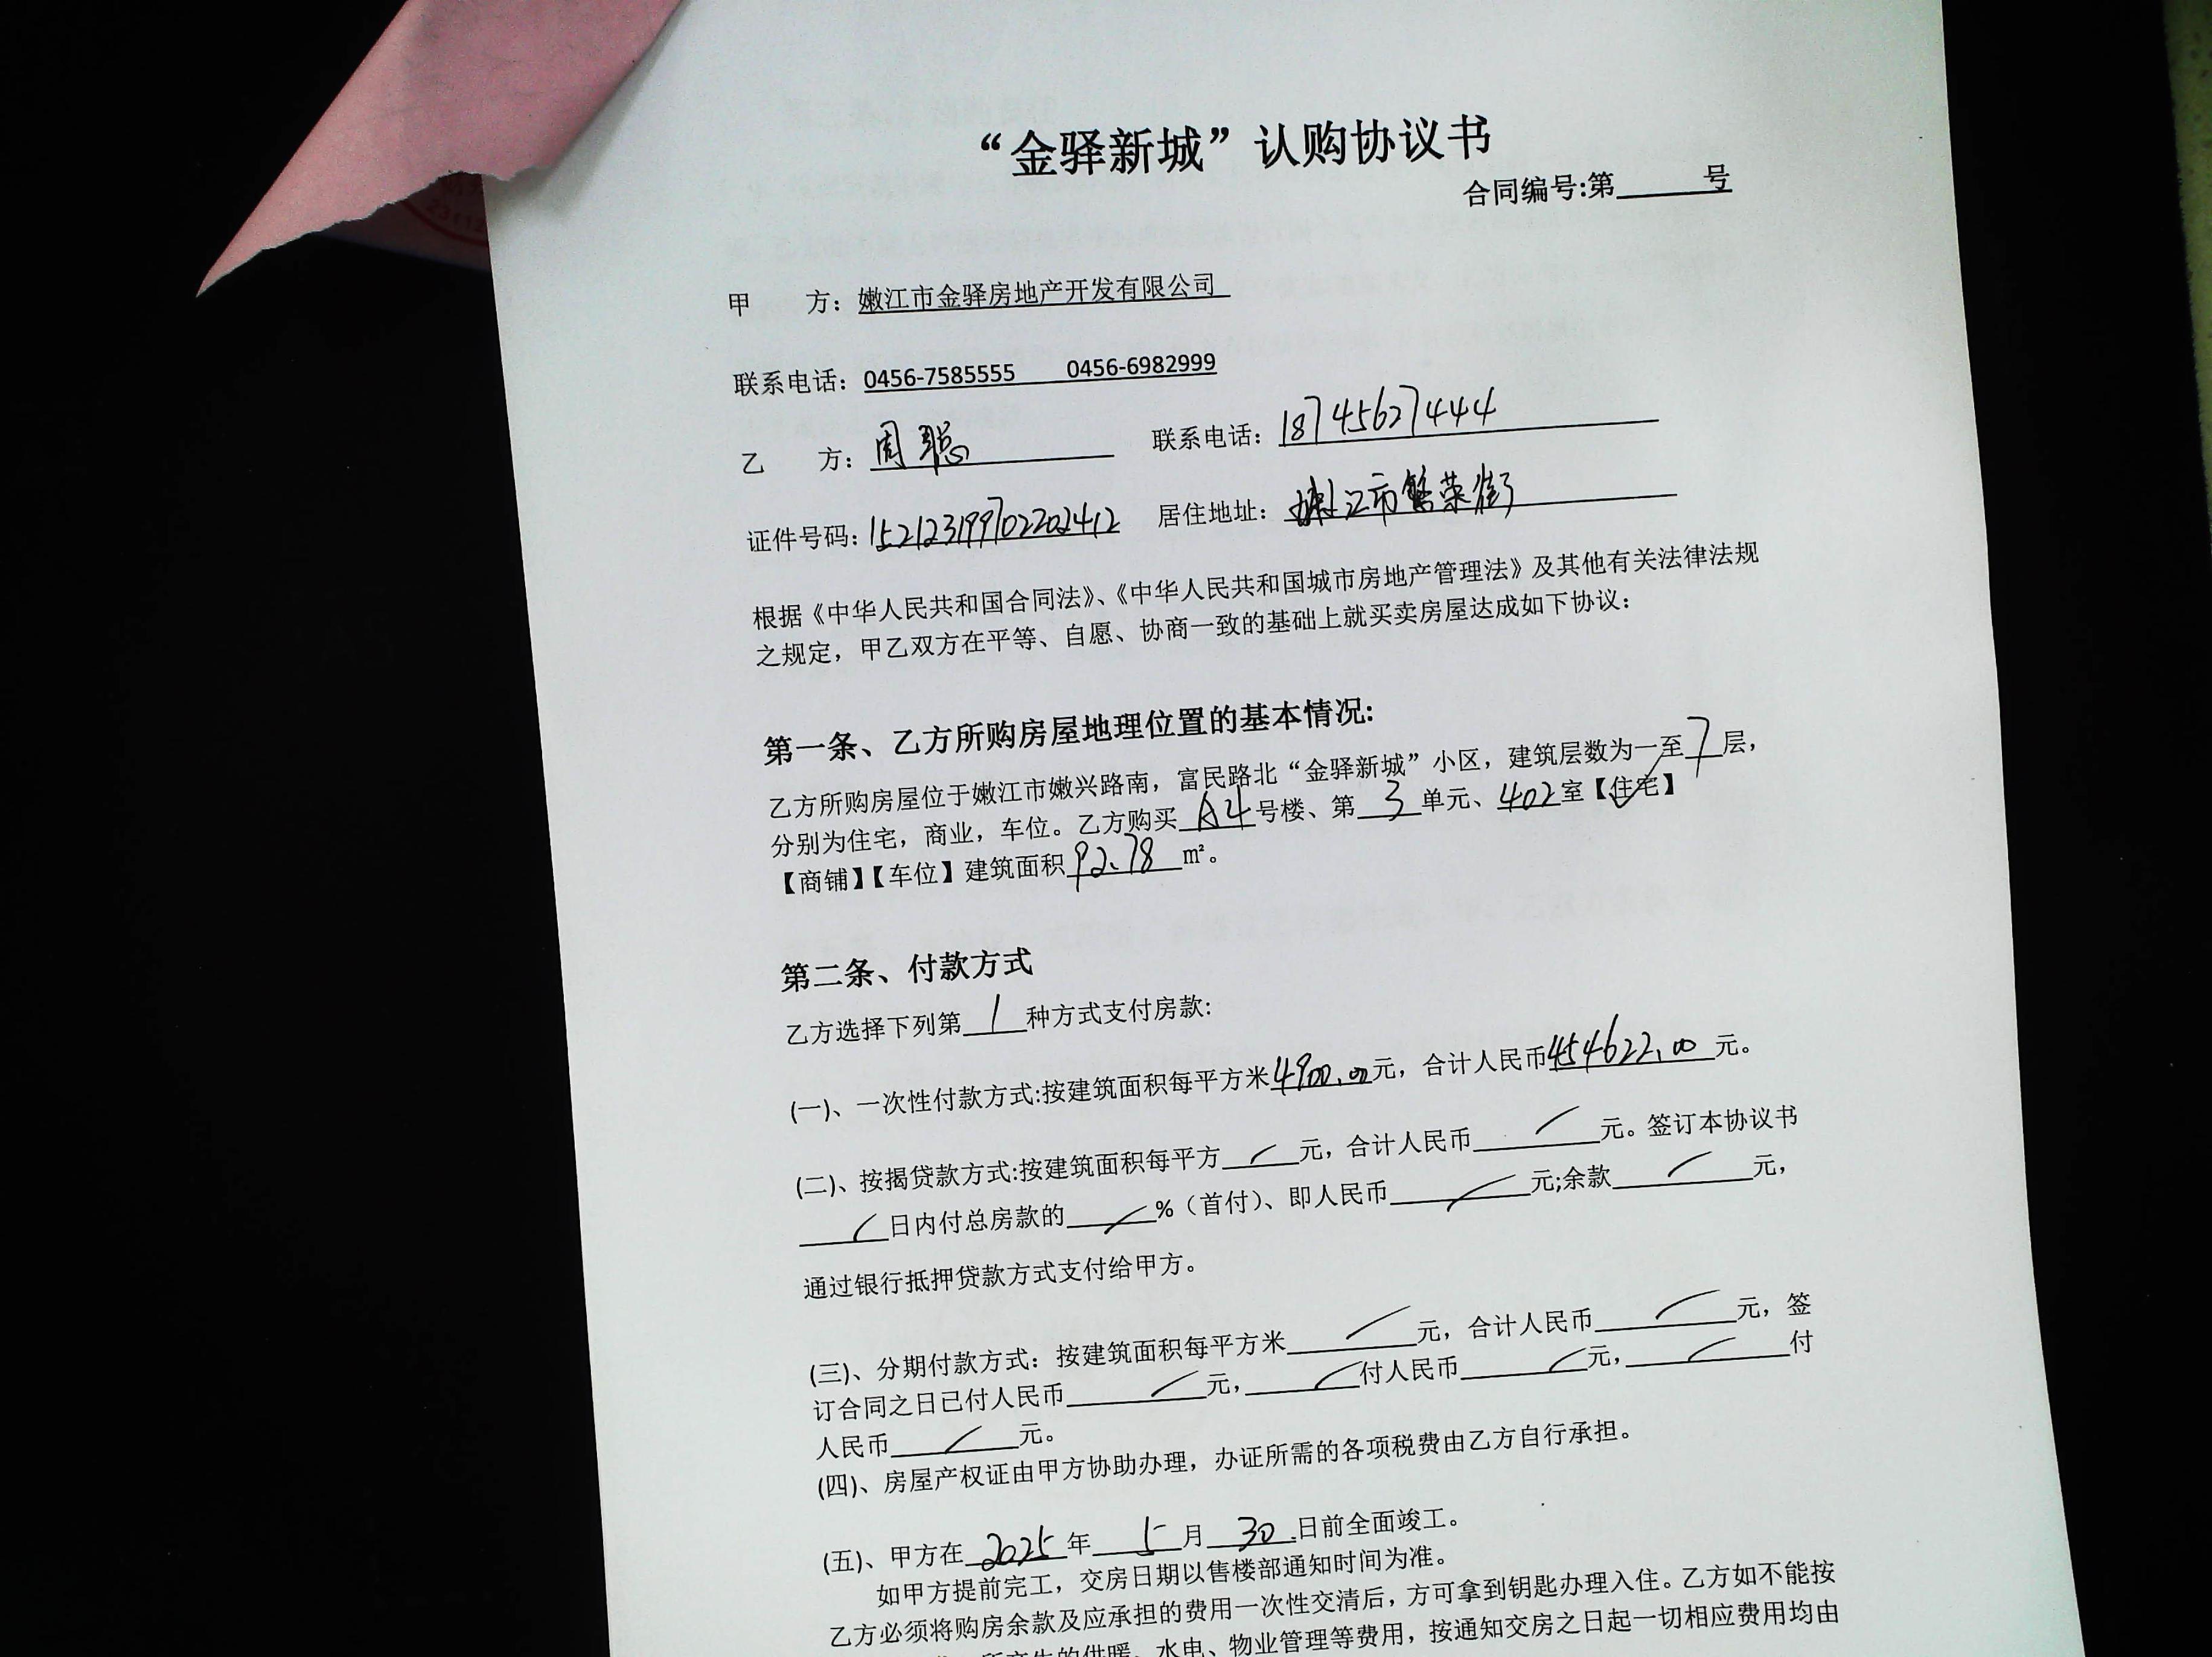 “金驿新城”认购协议书
合同编号:第______号
甲 方：嫩江市金驿房地产开发有限公司
联系电话：0456-7585555 0456-6982999
乙 方：周聪 联系电话：18745627444
证件号码：152123199702202412 居住地址：嫩江市繁荣街
根据《中华人民共和国合同法》、《中华人民共和国城市房地产管理法》及其他有关法律法规
之规定，甲乙双方在平等、自愿、协商一致的基础上就买卖房屋达成如下协议：
第一条、乙方所购房屋地理位置的基本情况:
乙方所购房屋位于嫩江市嫩兴路南，富民路北“金驿新城”小区，建筑层数为一至7层，
分别为住宅，商业，车位。乙方购买A4号楼、第3单元、402室【住宅】✓
【商铺】【车位】建筑面积92.78㎡。
第二条、付款方式
乙方选择下列第1种方式支付房款:
(一)、一次性付款方式:按建筑面积每平方米4900.00元，合计人民币454622.00元。
(二)、按揭贷款方式:按建筑面积每平方／元，合计人民币／元。签订本协议书
／日内付总房款的／%（首付）、即人民币／元;余款／元，
通过银行抵押贷款方式支付给甲方。
(三)、分期付款方式：按建筑面积每平方米／元，合计人民币／元，签
订合同之日已付人民币／元，／付人民币／元，／付
人民币／元。
(四)、房屋产权证由甲方协助办理，办证所需的各项税费由乙方自行承担。
(五)、甲方在2025年5月30日前全面竣工。
如甲方提前完工，交房日期以售楼部通知时间为准。
乙方必须将购房余款及应承担的费用一次性交清后，方可拿到钥匙办理入住。乙方如不能按
所产生的供暖、水电、物业管理等费用，按通知交房之日起一切相应费用均由